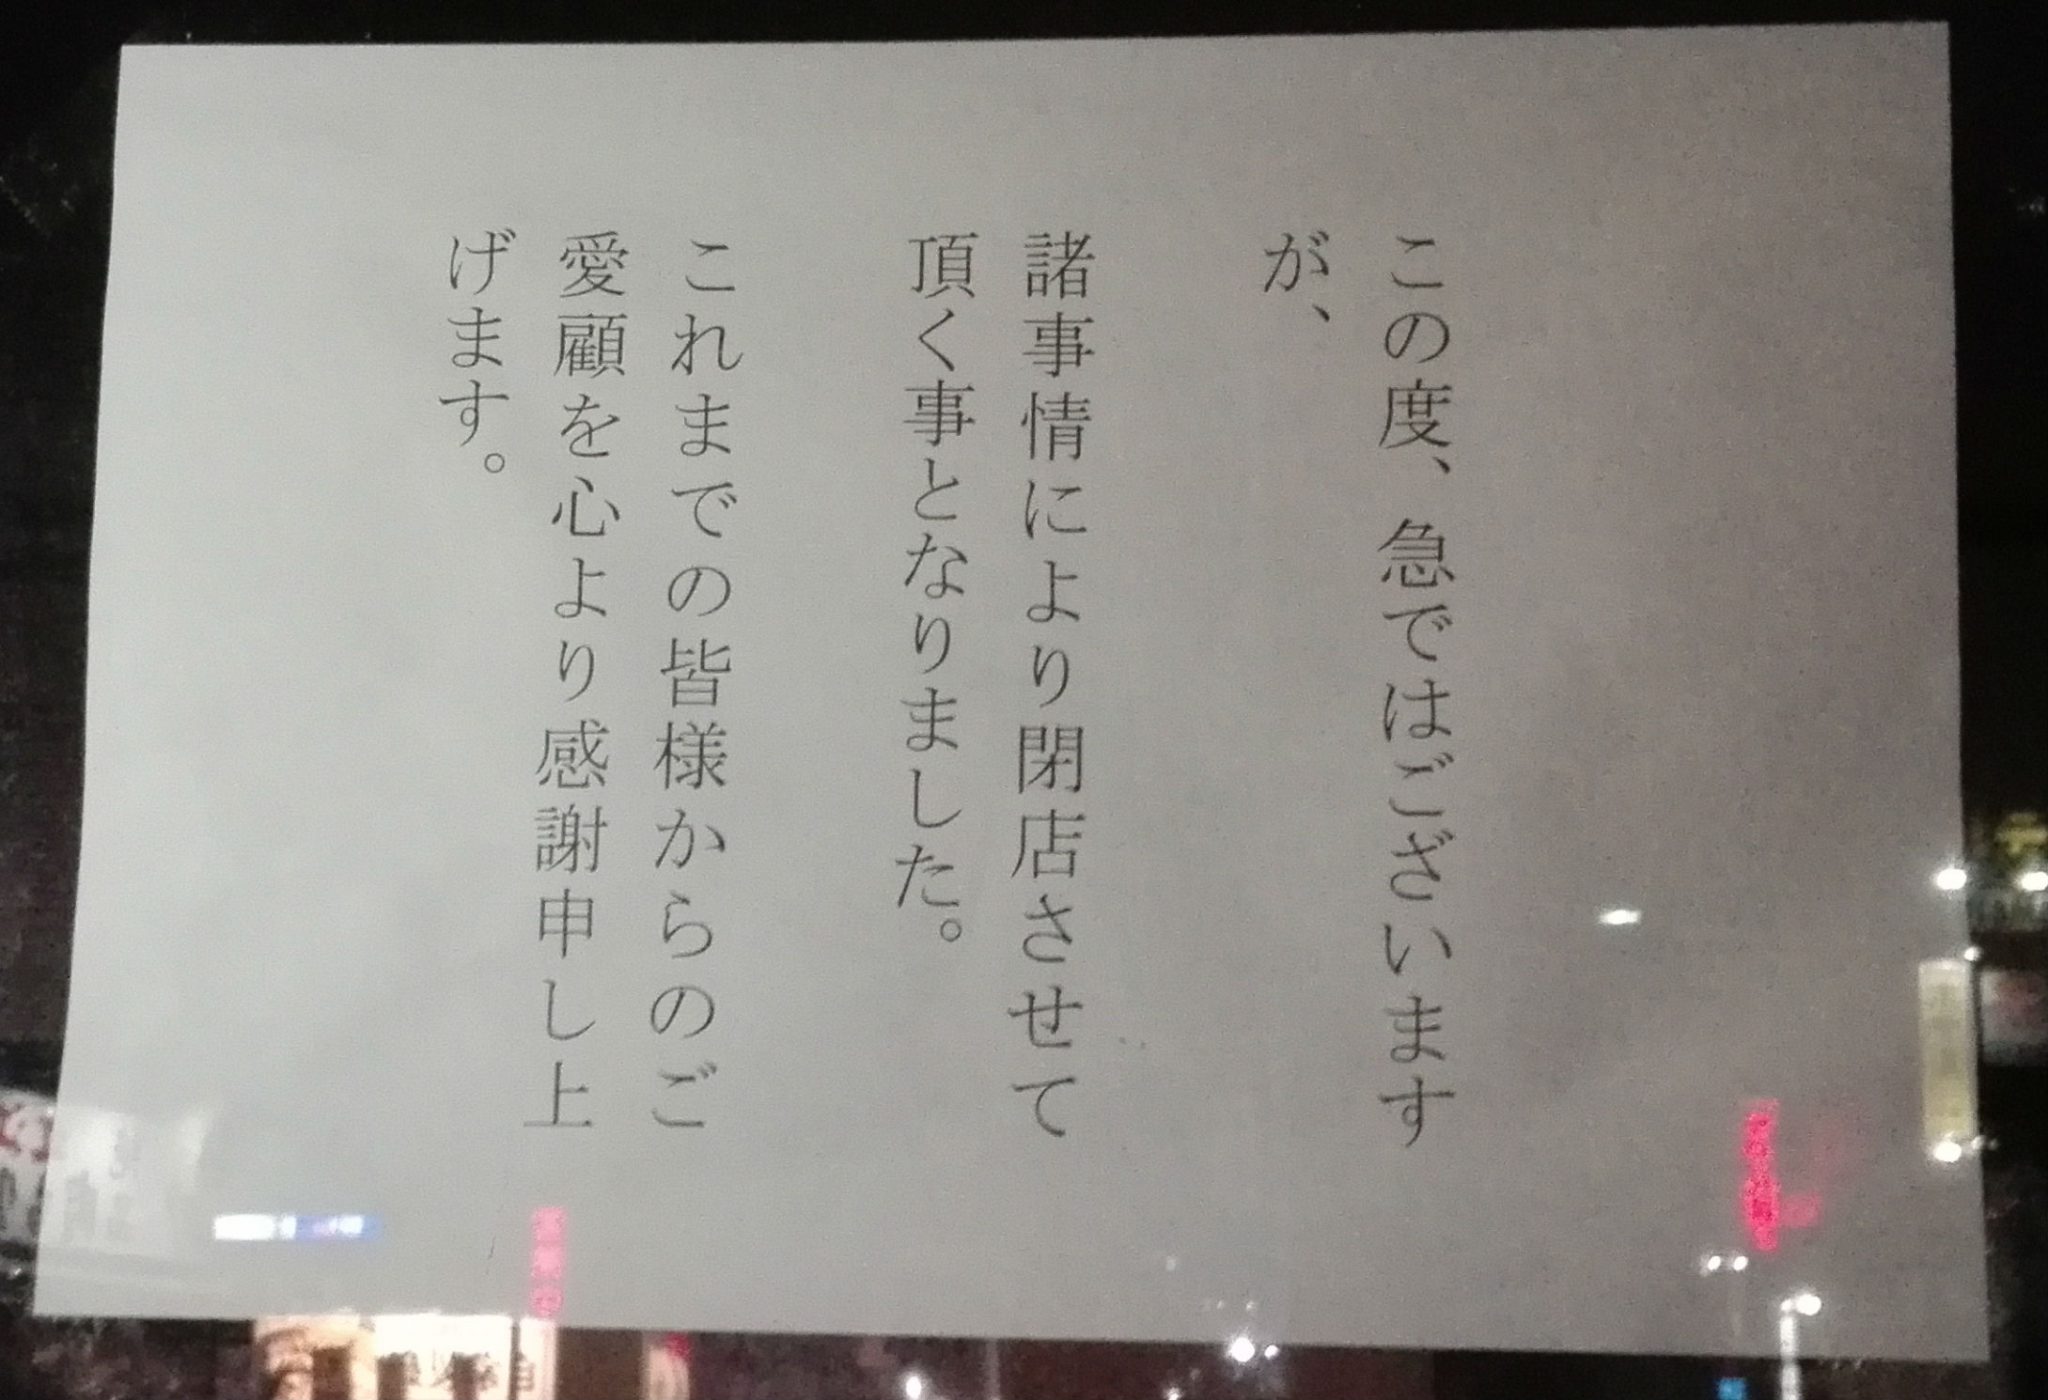 この度、急ではございます
が、
諸事情により閉店させて
頂く事となりました。
これまでの皆様からのご
愛顧を心より感謝申し上
げます。